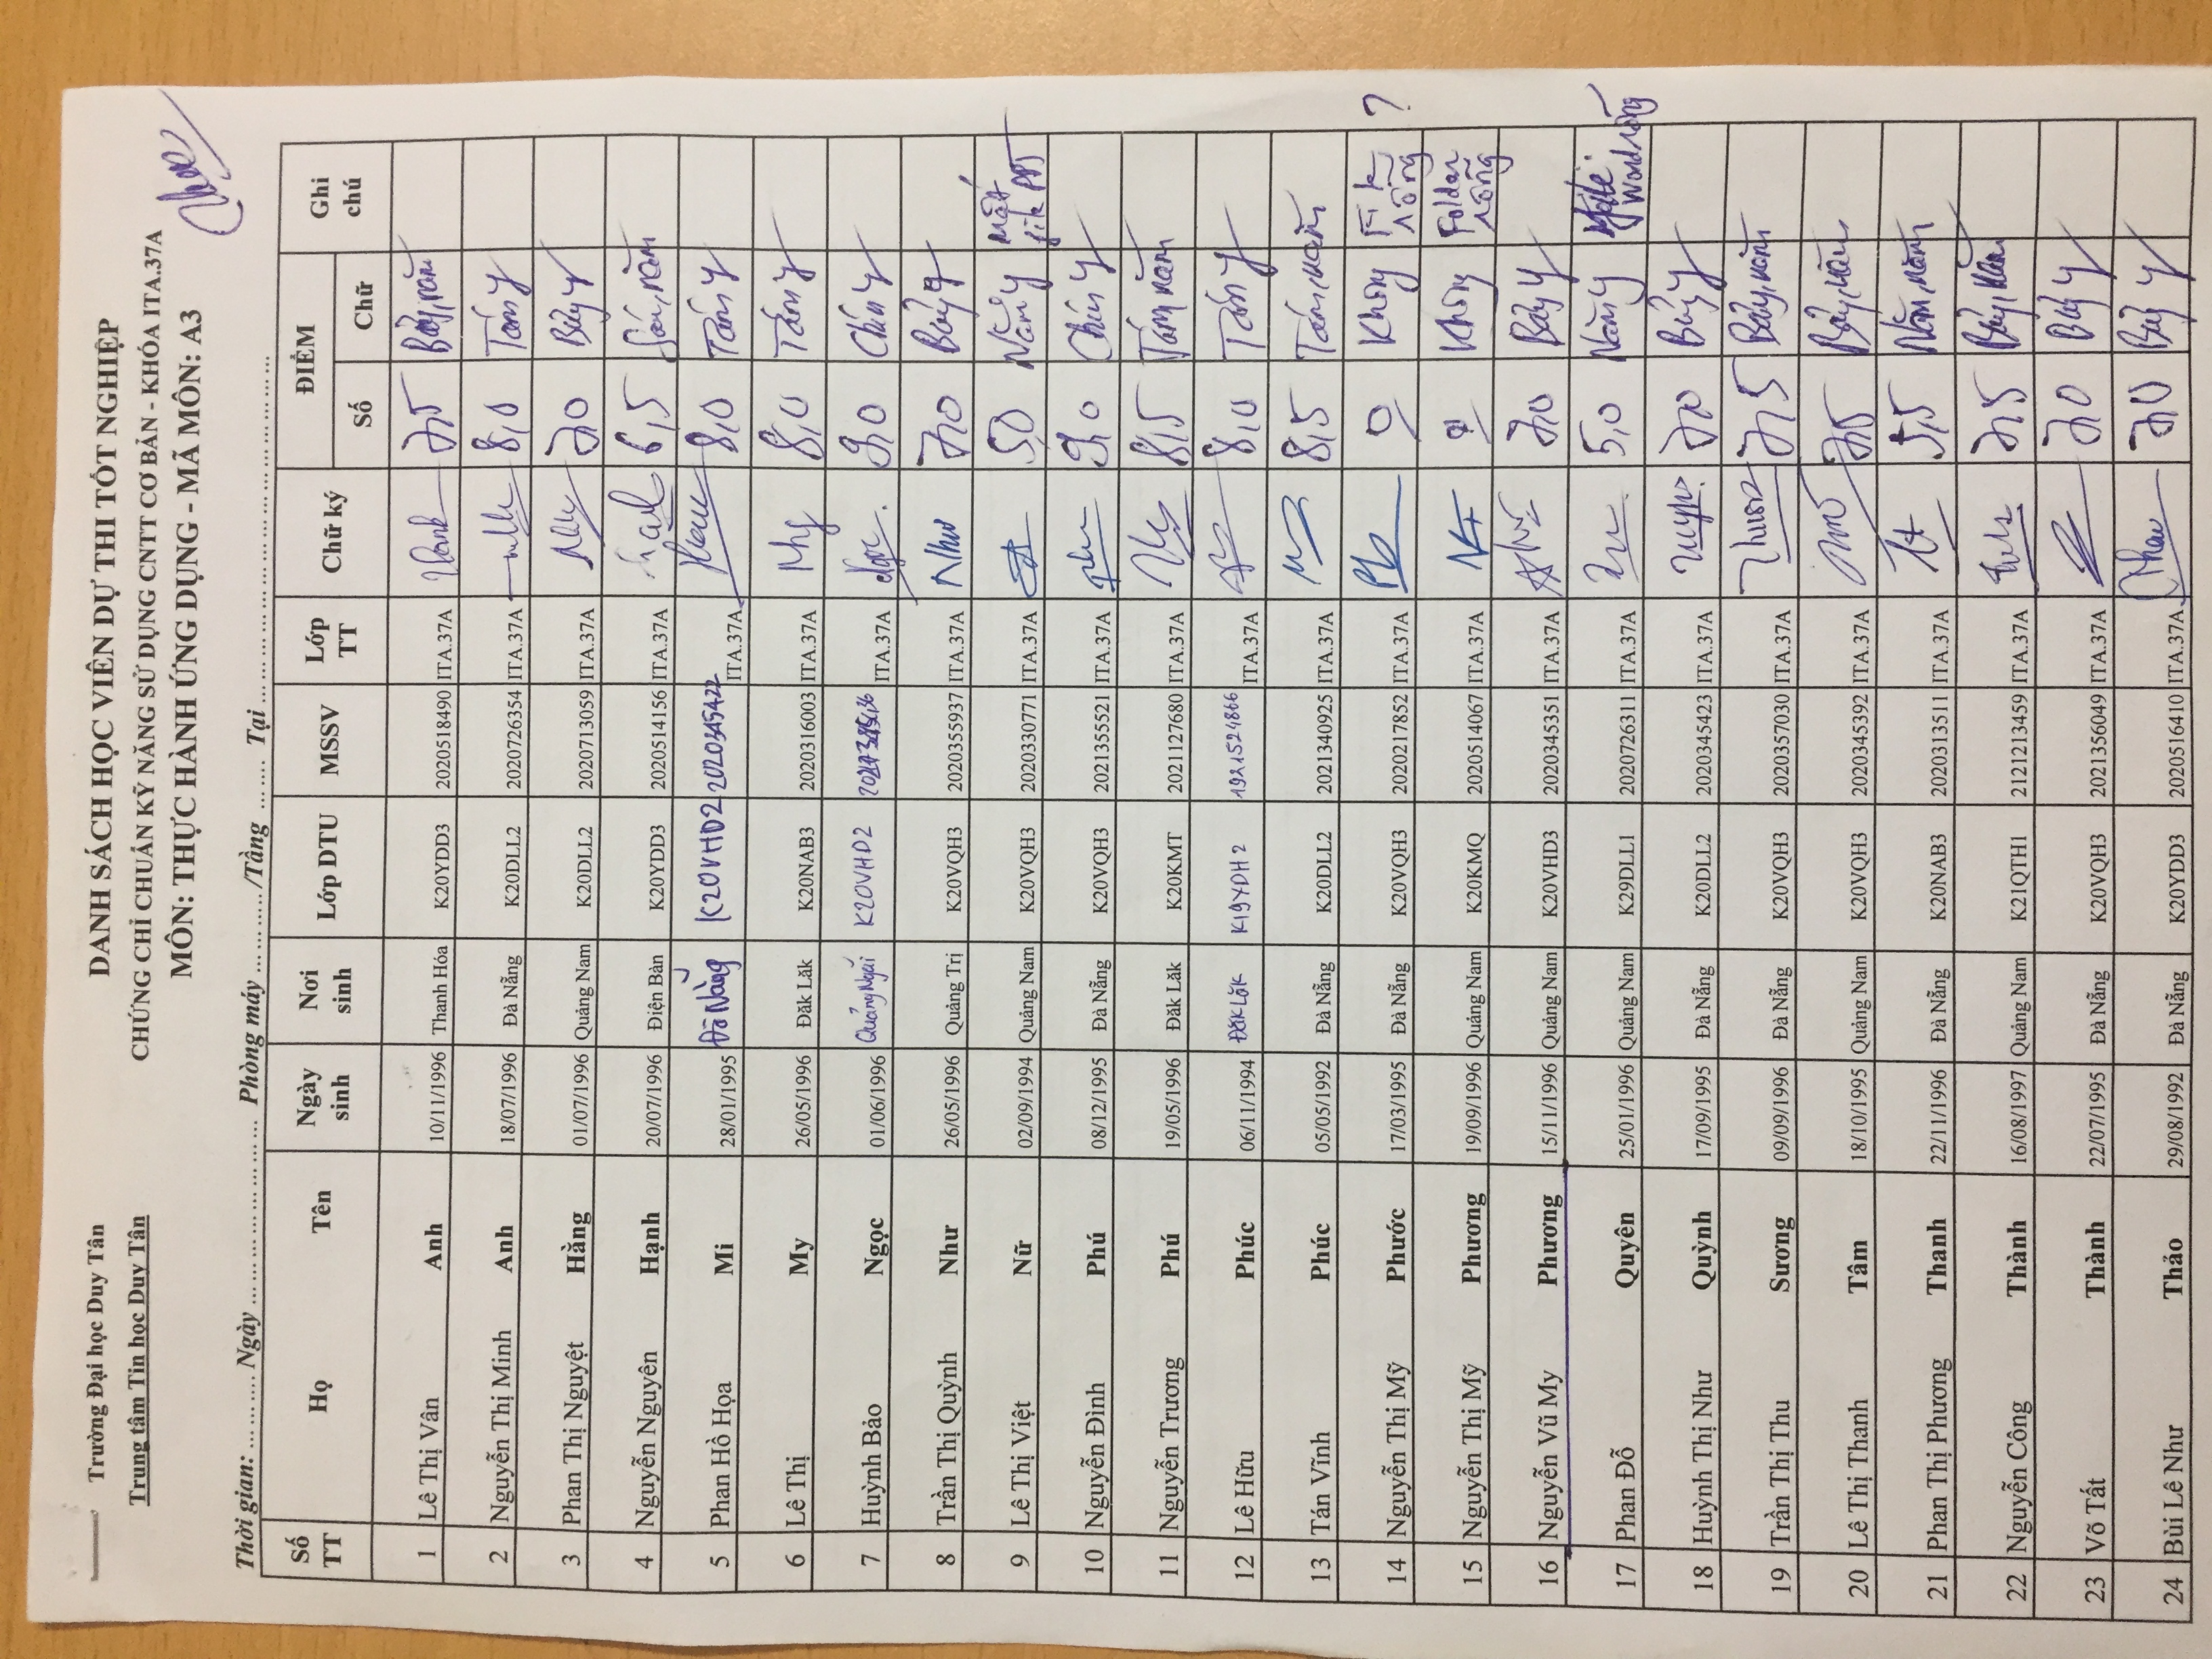 Trường Đại học Duy Tân
Trung tâm Tin học Duy Tân
DANH SÁCH HỌC VIÊN DỰ THI TỐT NGHIỆP
CHỨNG CHỈ CHUẨN KỸ NĂNG SỬ DỤNG CNTT CƠ BẢN - KHÓA ITA.37A
MÔN: THỰC HÀNH ỨNG DỤNG - MÃ MÔN: A3
Thời gian: ... ........ Ngày ... ... ... ... ... ... Phòng máy ... ... ... ./Tầng ... ... Tại ... ... ... ... ... ... ... ... ... ... ... ...
Số TT Họ Tên Ngày sinh Nơi sinh Lớp DTU MSSV Lớp TT Chữ ký ĐIỂM Số Chữ Ghi chú
1 Lê Thị Vân Anh 10/11/1996 Thanh Hóa K20YDD3 2020518490 ITA.37A 7,5 Bảy,năm
2 Nguyễn Thị Minh Anh 18/07/1996 Đà Nẵng K20DLL2 2020726354 ITA.37A 8,0 Tám y
3 Phan Thị Nguyệt Hằng 01/07/1996 Quảng Nam K20DLL2 2020713059 ITA.37A 7,0 Bảy y
4 Nguyễn Nguyên Hạnh 20/07/1996 Điện Bàn K20YDD3 2020514156 ITA.37A 6,5 Sáu,năm
5 Phan Hồ Họa Mi 28/01/1995 Đà Nẵng K20VHD2 2020345422 ITA.37A 8,0 Tám y
6 Lê Thị My 26/05/1996 Đăk Lăk K20NAB3 2020316003 ITA.37A My 8,0 Tám y
7 Huỳnh Bảo Ngọc 01/06/1996 Quảng Ngãi K20VHD2 ITA.37A Ngọc 9,0 Chín y
8 Trần Thị Quỳnh Như 26/05/1996 Quảng Trị K20VQH3 2020355937 ITA.37A Như 7,0 Bảy y
9 Lê Thị Việt Nữ 02/09/1994 Quảng Nam K20VQH3 2020330771 ITA.37A 5,0 Năm y Mất file PPT
10 Nguyễn Đình Phú 08/12/1995 Đà Nẵng K20VQH3 2021355521 ITA.37A 9,0 Chín y
11 Nguyễn Trương Phú 19/05/1996 Đăk Lăk K20KMT 2021127680 ITA.37A 8,5 Tám,năm
12 Lê Hữu Phúc 06/11/1994 Đăk Lăk K19YDH2 1921524866 ITA.37A 8,0 Tám y
13 Tán Vĩnh Phúc 05/05/1992 Đà Nẵng K20DLL2 2021340925 ITA.37A 8,5 Tám,năm
14 Nguyễn Thị Mỹ Phước 17/03/1995 Đà Nẵng K20VQH3 2020217852 ITA.37A 0 Không File rỗng ?
15 Nguyễn Thị Mỹ Phương 19/09/1996 Quảng Nam K20KMQ 2020514067 ITA.37A 0 Không Folder rỗng
16 Nguyễn Vũ My Phương 15/11/1996 Quảng Nam K20VHD3 2020345351 ITA.37A 7,0 Bảy y
17 Phan Đỗ Quyên 25/01/1996 Quảng Nam K29DLL1 2020726311 ITA.37A 5,0 Năm y Word rỗng
18 Huỳnh Thị Như Quỳnh 17/09/1995 Đà Nẵng K20DLL2 2020345423 ITA.37A 7,0 Bảy y
19 Trần Thị Thu Sương 09/09/1996 Đà Nẵng K20VQH3 2020357030 ITA.37A 7,5 Bảy,năm
20 Lê Thị Thanh Tâm 18/10/1995 Quảng Nam K20VQH3 2020345392 ITA.37A 7,5 Bảy,năm
21 Phan Thị Phương Thanh 22/11/1996 Đà Nẵng K20NAB3 2020313511 ITA.37A 5,5 Năm,năm
22 Nguyễn Công Thành 16/08/1997 Quảng Nam K21QTH1 2121213459 ITA.37A 7,5 Bảy,năm
23 Võ Tất Thành 22/07/1995 Đà Nẵng K20VQH3 2021356049 ITA.37A 7,0 Bảy y
24 Bùi Lê Như Thảo 29/08/1992 Đà Nẵng K20YDD3 2020516410 ITA.37A 7,0 Bảy y